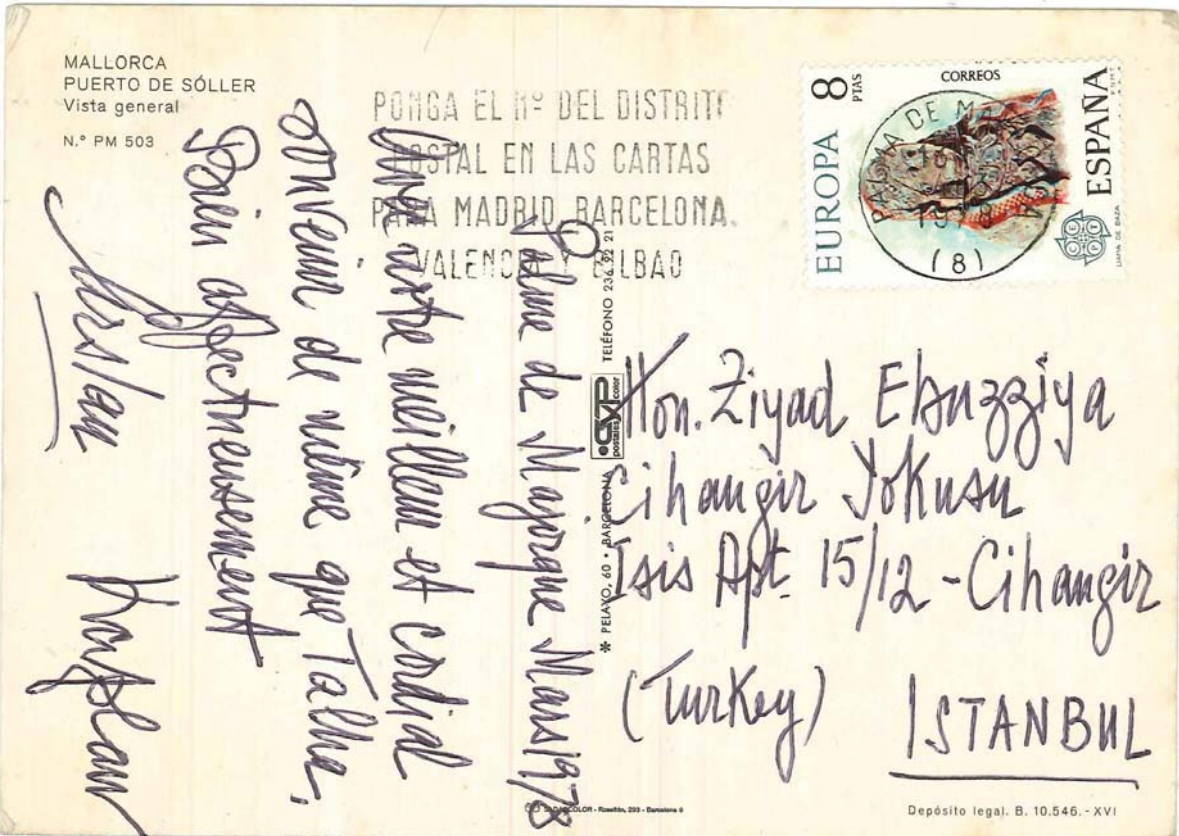 MALLORCA
PUERTO DE SÓLLER
Vista general
N.º PM 503
PONGA EL Nº DEL DISTRITO
POSTAL EN LAS CARTAS
PARA MADRID, BARCELONA,
VALENCIA Y BILBAO
EUROPA 8 PTAS
CORREOS
ESPAÑA
CEPT
DAMA DE BAZA
PALMA DE
(8)
Palma de Majorque Mars 1978
meilleur et cordial
souvenir de même que Talha,
Bien affectueusement
Arslan
* PELAYO, 60 • BARCELONA
postales color
TELÉFONO 236 32 21
Hon. Ziyad Ebuzziya
Cihangir Yokusu
Isis Apt. 15/12 - Cihangir
(Turkey) ISTANBUL
Rosellón, 293 - Barcelona
Depósito legal. B. 10.546. - XVI